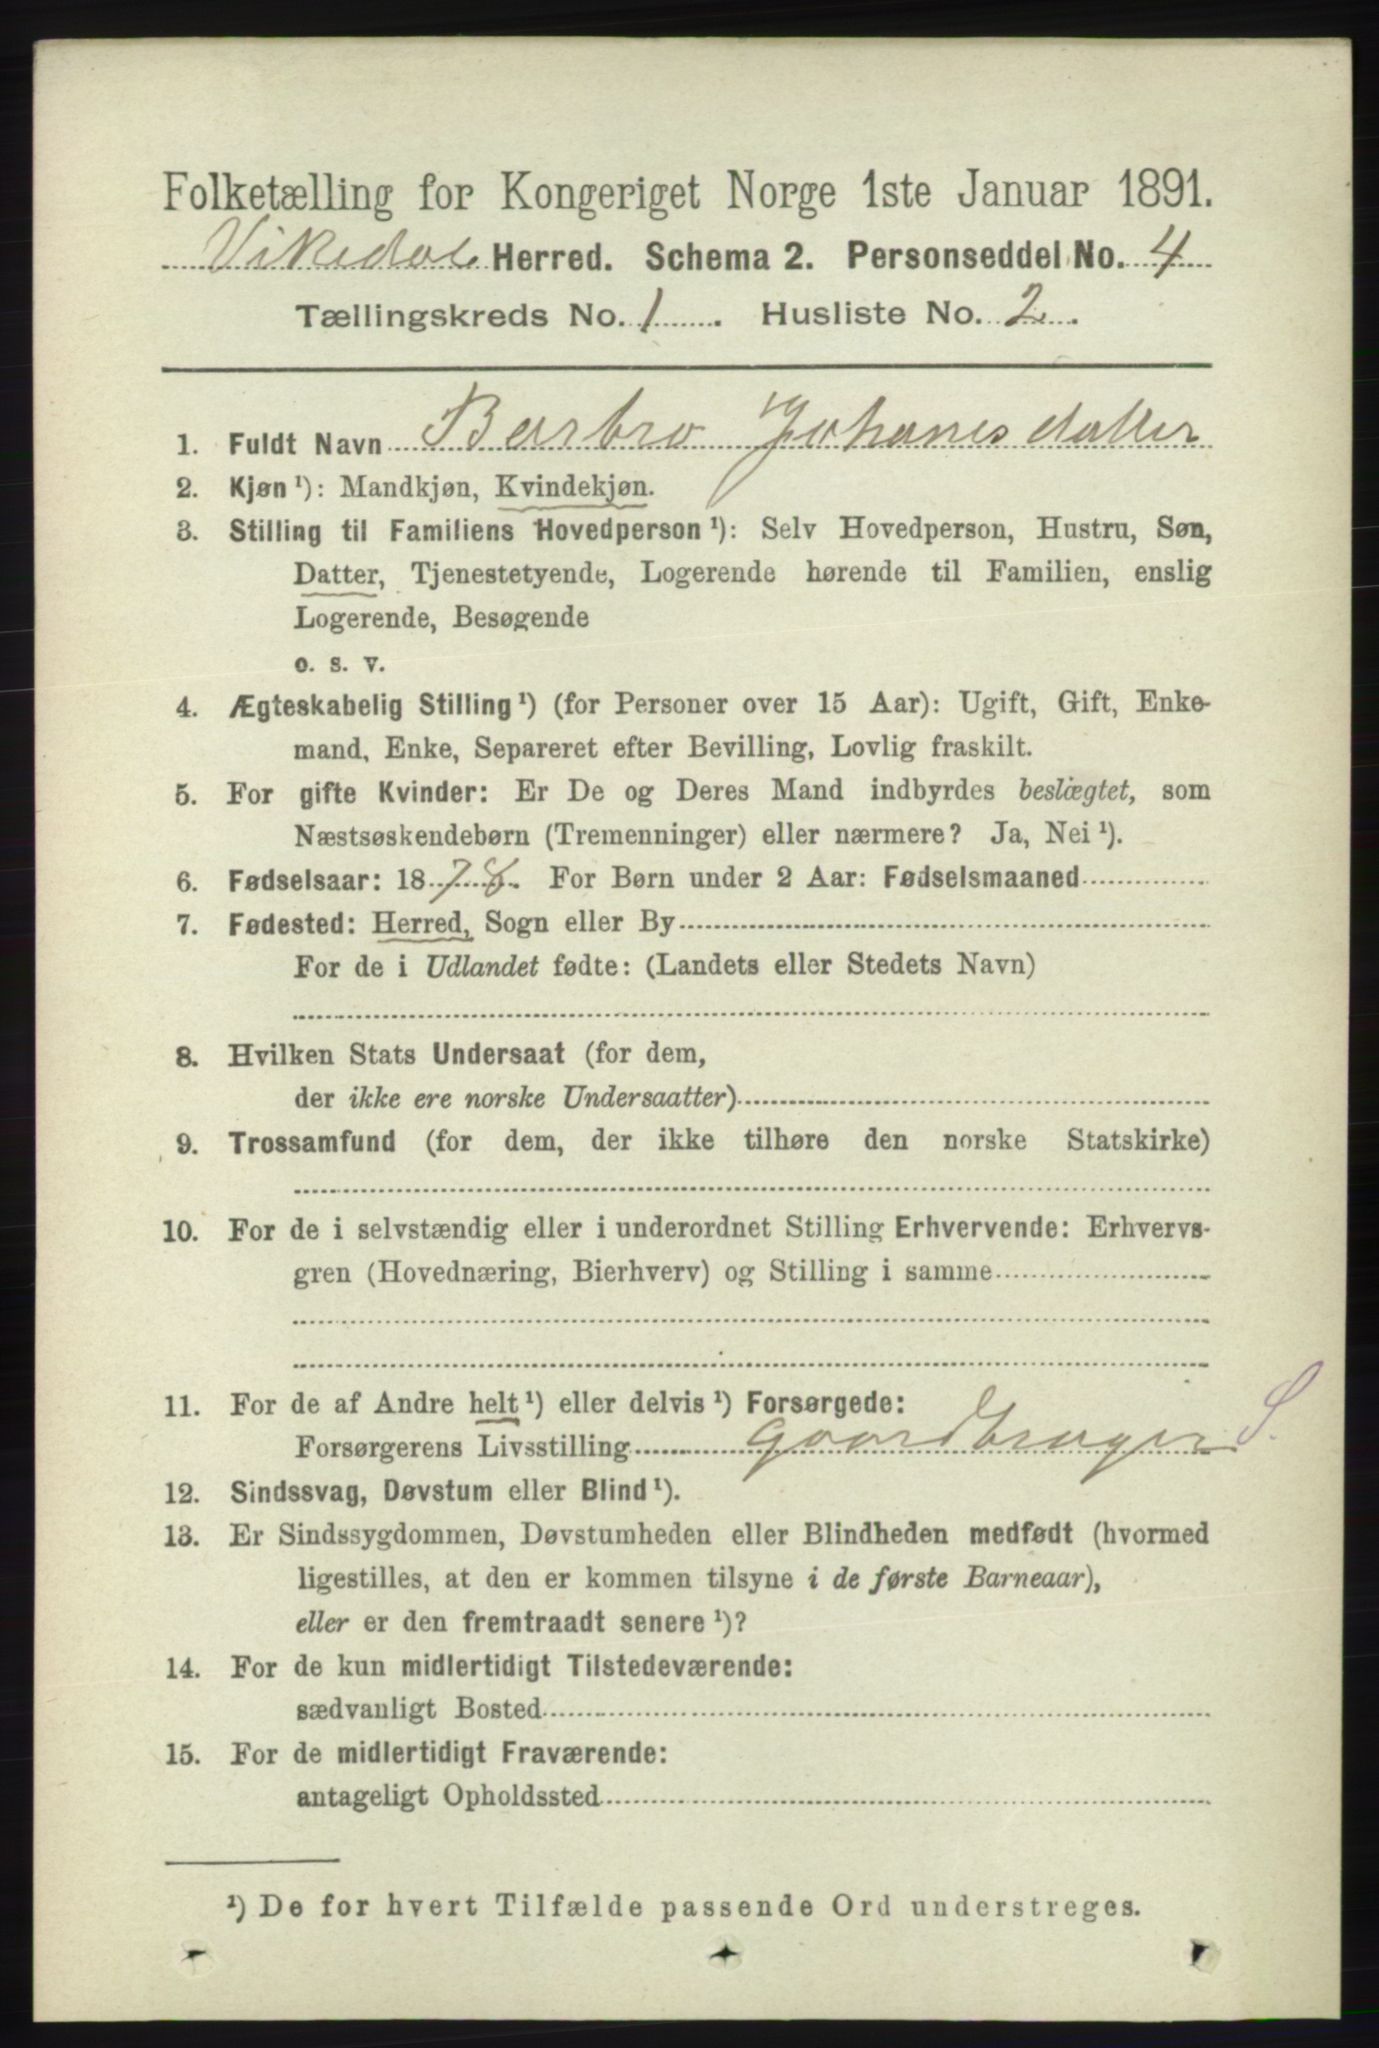 Folketælling for Kongeriget Norge 1ste Januar 1891.
Vikedal Herred. Schema 2. Personseddel No. 4
Tællingskreds No. 1. Husliste No. 2.
1. Fuldt Navn Barbro Johanesdatter
2. Kjøn ¹): Mandkjøn, Kvindekjøn.
3. Stilling til Familiens Hovedperson ¹): Selv Hovedperson, Hustru, Søn,
Datter, Tjenestetyende, Logerende hørende til Familien, enslig
Logerende, Besøgende
o. s. v.
4. Ægteskabelig Stilling ¹) (for Personer over 15 Aar): Ugift, Gift, Enke-
mand, Enke, Separeret efter Bevilling, Lovlig fraskilt.
5. For gifte Kvinder: Er De og Deres Mand indbyrdes beslægtet, som
Næstsøskendebørn (Tremenninger) eller nærmere? Ja, Nei ¹).
6. Fødselsaar: 1878. For Børn under 2 Aar: Fødselsmaaned
7. Fødested: Herred, Sogn eller By
For de i Udlandet fødte: (Landets eller Stedets Navn)
8. Hvilken Stats Undersaat (for dem,
der ikke ere norske Undersaatter)
9. Trossamfund (for dem, der ikke tilhøre den norske Statskirke)
10. For de i selvstændig eller i underordnet Stilling Erhvervende: Erhvervs-
gren (Hovednæring, Bierhverv) og Stilling i samme
11. For de af Andre helt ¹) eller delvis ¹) Forsørgede:
Forsørgerens Livsstilling Gaardbruger S.
12. Sindssvag, Døvstum eller Blind ¹).
13. Er Sindssygdommen, Døvstumheden eller Blindheden medfødt (hvormed
ligestilles, at den er kommen tilsyne i de første Barneaar),
eller er den fremtraadt senere ¹)?
14. For de kun midlertidigt Tilstedeværende:
sædvanligt Bosted
15. For de midlertidigt Fraværende:
antageligt Opholdssted
¹) De for hvert Tilfælde passende Ord understreges.